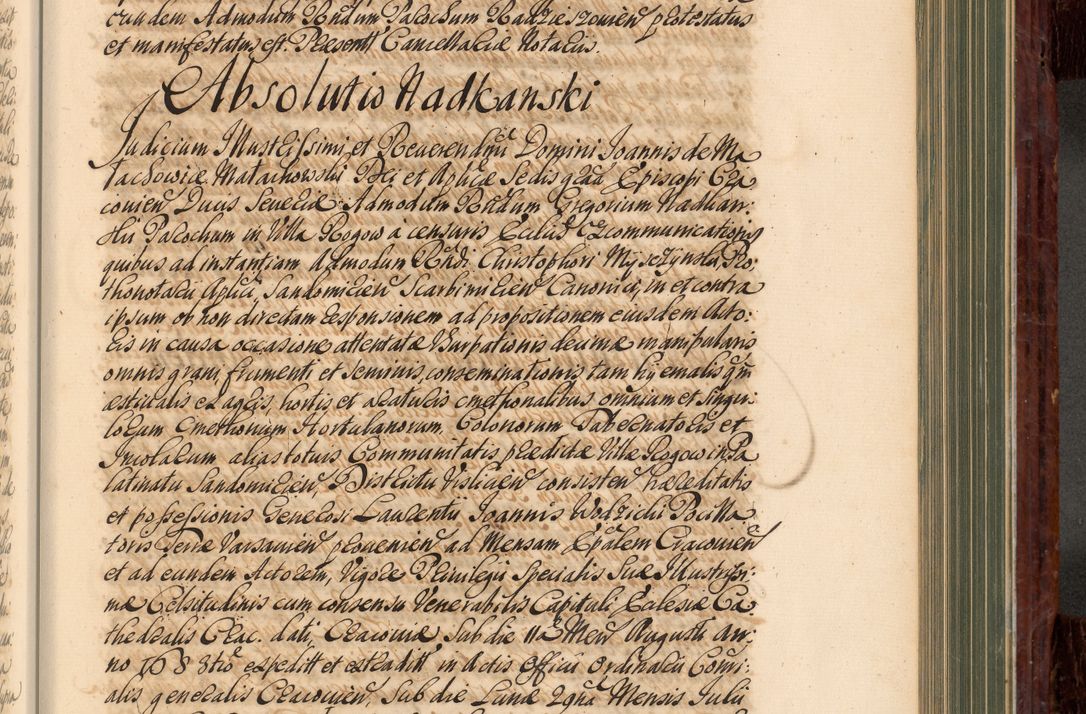 eundem Admodum Rndum Parochum Radzieszouien protestatus
et manifestatus est. Praesentt Cancellariae Notariis.
Absolutio Nadkanski
Judicium Illustrissimi et Reverendmi Domini Joannis de Ma
łachowice Małachowski Dei et Aplicae Sedis gratia Episcopi Cra
covien Ducis Severiae Admodum Rndum Gregorium Nadkan:
ski Parochum in Villa Rogow a censuris Ecclae Excommunicationis
quibus ad instantiam Admodum Rndi Christophori Myszczynski Pro
thonotarii Aplici, Sandomirien Scarbimirien Canonici, in et contra
ipsum ob non directam responsionem ad propositionem eiusdem Acto:
ris in causa occasione attentatae Usurpationis decimae manipularis
omnis grani frumenti et seminis, conseminationis tam hyemalis qm
aestivalis ex agris hortis et areatulis cmethonalibus omnium et singu:
lorum Cmethonum Hortulanorum, Colonorum Tabernatoris et
Incolarum alias totius Communitatis praedictae Villae Rogow in Pa
latinatu Sandomirien, Districtu Vislicien consisten haereditatis
et possessionis Generosi Laurentii Joannis Wodzicki Pocilla
toris Terrae Varsavien provenien ad Mensam Epalem Cracovien
et ad eundem Actorem, Vigore Privilegii Specialis Suae Illustrissi:
mae Celsitudinis cum consensu Venerabilis Capituli Ecclesiae Ca:
thedralis Crac. dati, Cracoviae sub die 11a Men Augusti an:
no 1683tio expeditt et extraditt in Actis Officii Ordinarii Consi:
alis generalis Cracovien, Sub die Lunae 2gna Mensis Julii